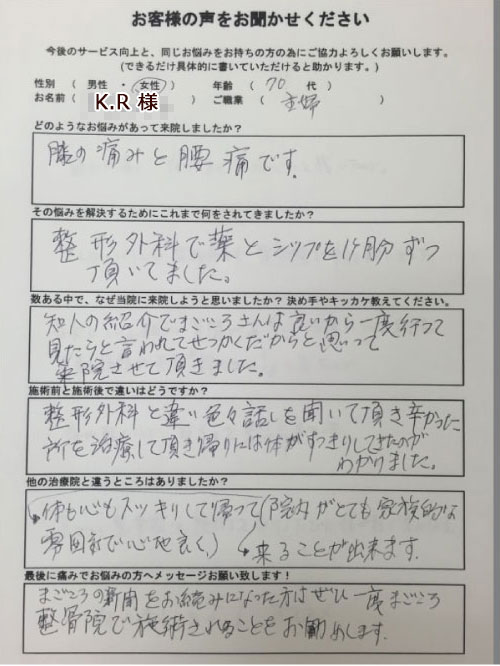 お客様の声をお聞かせください
今後のサービス向上と、同じお悩みをお持ちの方の為にご協力よろしくお願いします。
(できるだけ具体的に書いていただけると助かります。)
性別 ( 男性 ・ 女性 ) 年齢 ( 70 代 )
お名前 ( K.R 様 ご職業 ( 主婦 )
どのようなお悩みがあって来院しましたか?
膝の痛みと腰痛です.
その悩みを解決するためにこれまで何をされてきましたか?
整形外科で薬とシップを1ヶ月分ずつ
頂いてました。
数ある中で、なぜ当院に来院しようと思いましたか? 決め手やキッカケ教えてください。
知人の紹介でまごころさんは良いから一度行って
見たらと言われてせっかくだからと思って
来院させて頂きました。
施術前と施術後で違いはどうですか?
整形外科と違い色々話しを聞いて頂き辛かった
所を治療して頂き帰りには体がすっきりしてきたのが
わかりました。
他の治療院と違うところはありましたか?
体も心もスッキリして帰って(院内がとても家族的な
雰囲気で心地良く、) 来ることが出来ます.
最後に痛みでお悩みの方へメッセージお願い致します!
まごころの新聞をお読みになった方はぜひ一度まごころ
整骨院で施術されることをお勧めします.